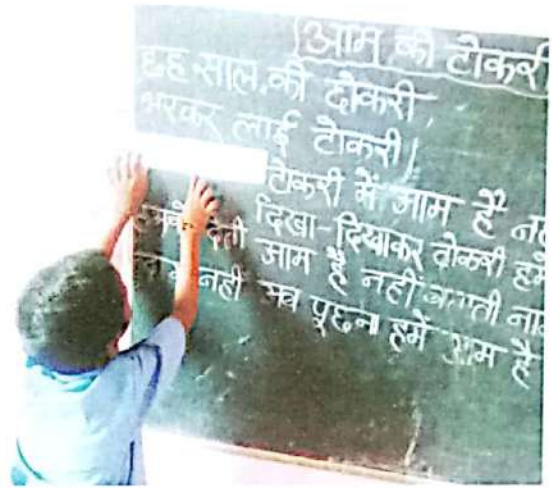 आम की टोकरी
छह साल की छोकरी,
भरकर लाई टोकरी।
टोकरी में आम हैं
दिखा-दिखाकर टोकरी हमें
आम है नहीं बताती
नहीं अब पूछना हमें आम है